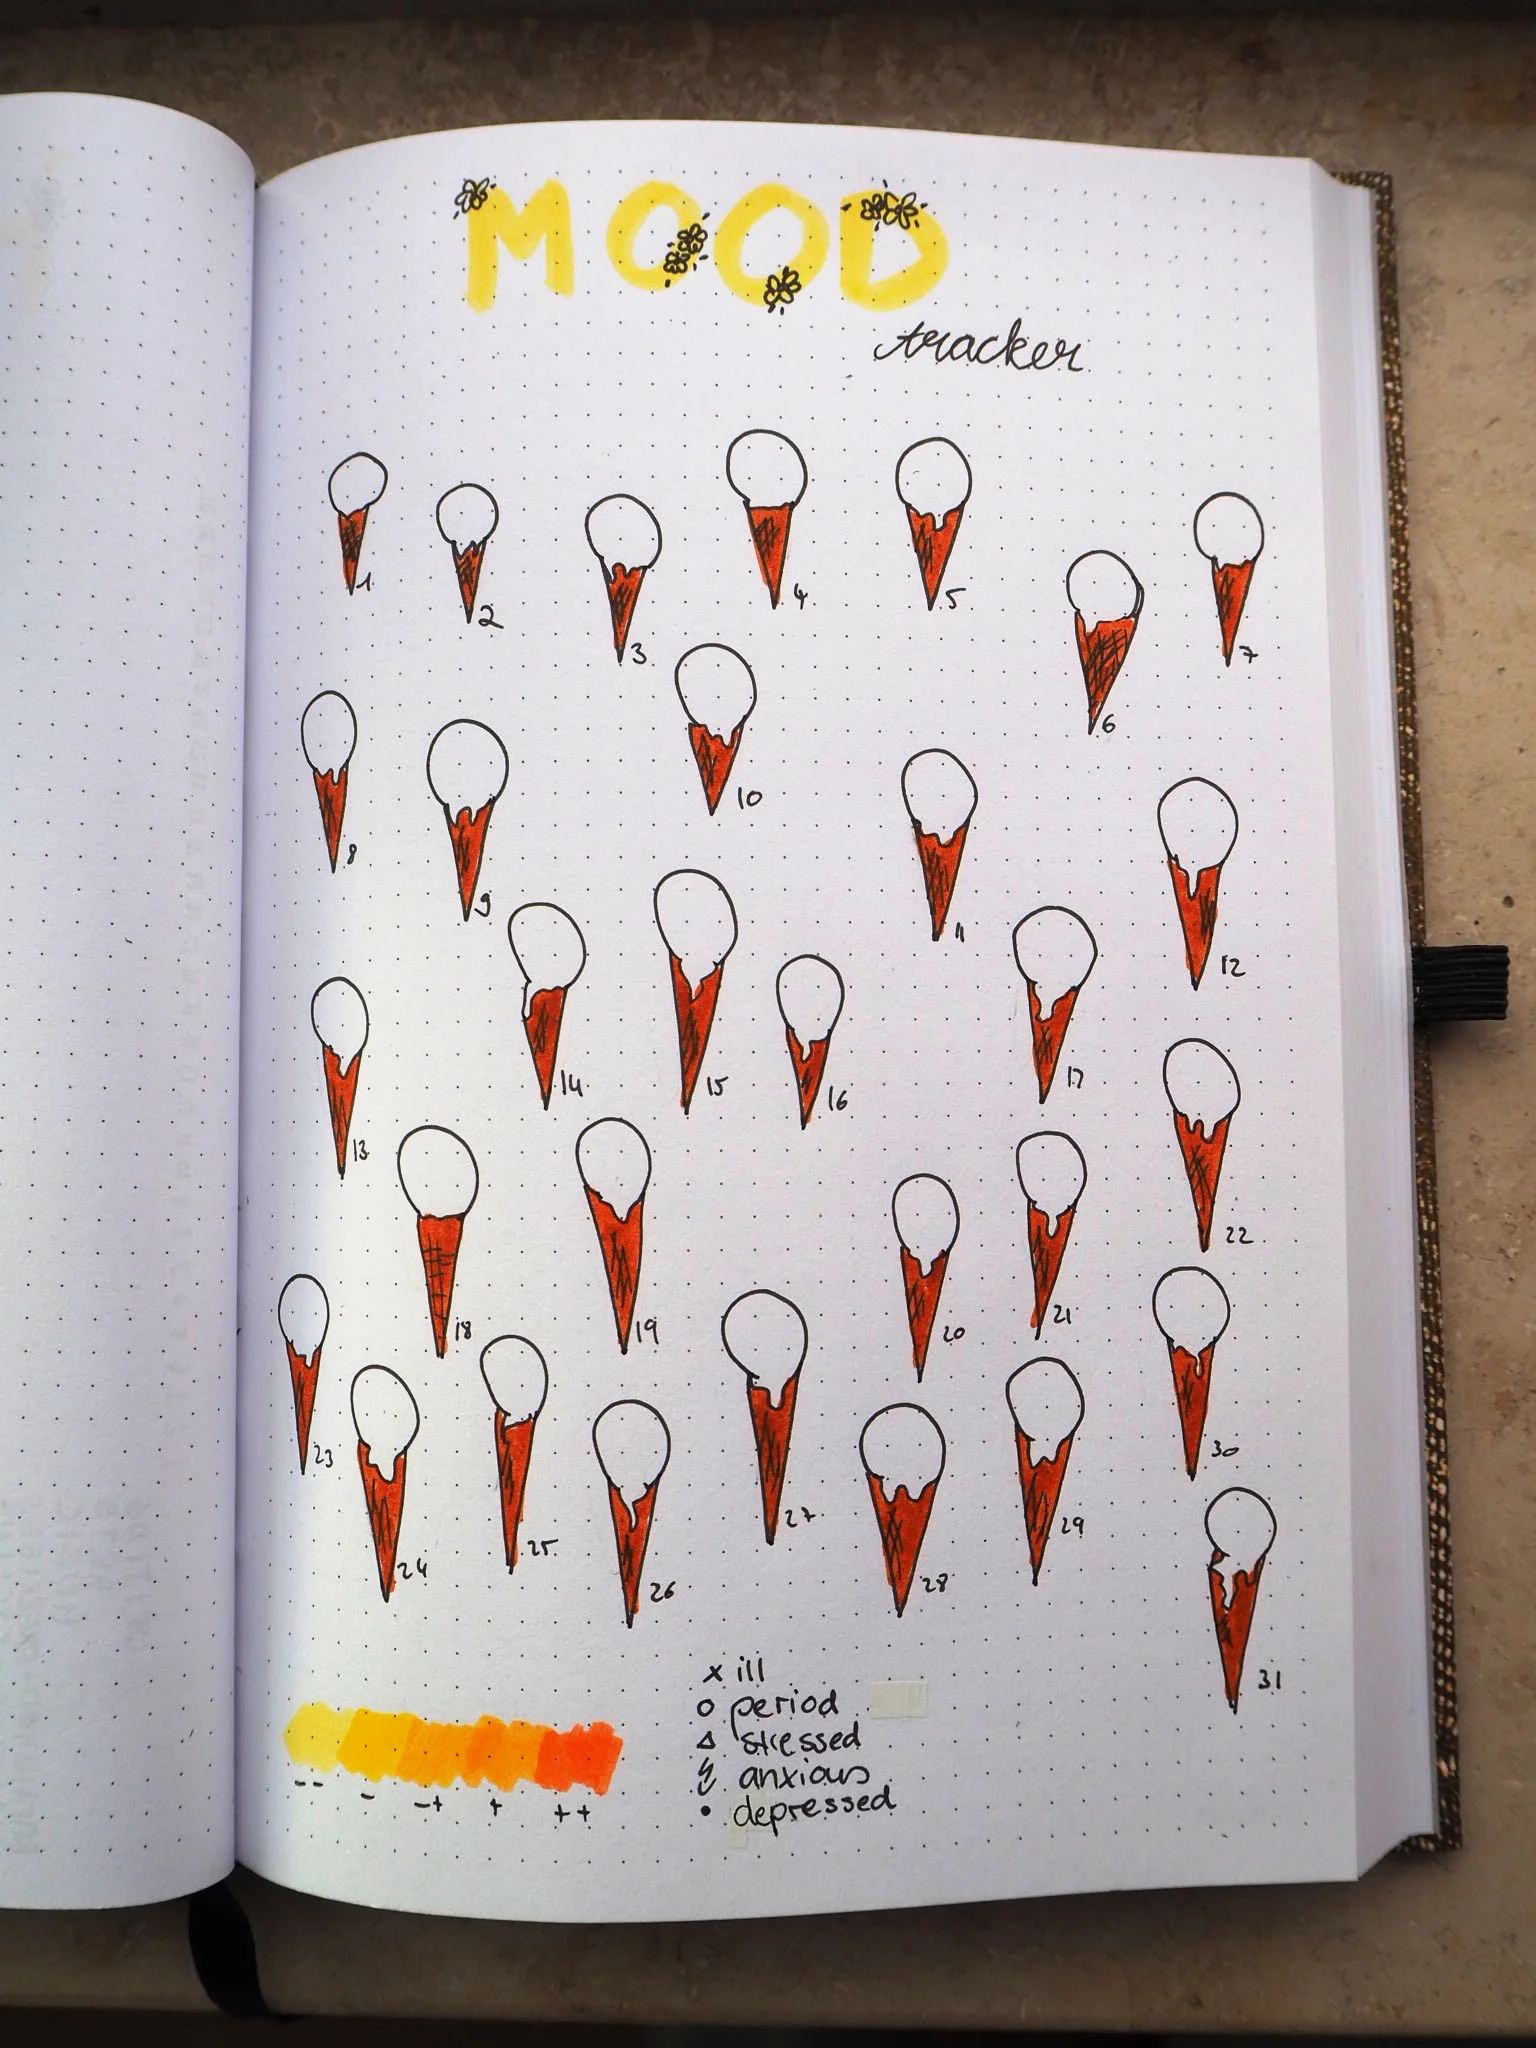 MOOD
tracker
1
2
3
4
5
6
7
8
9
10
11
12
13
14
15
16
17
18
19
20
21
22
23
24
25
26
27
28
29
30
31
x ill
o period
△ stressed
anxious
• depressed
-- - -+ + ++